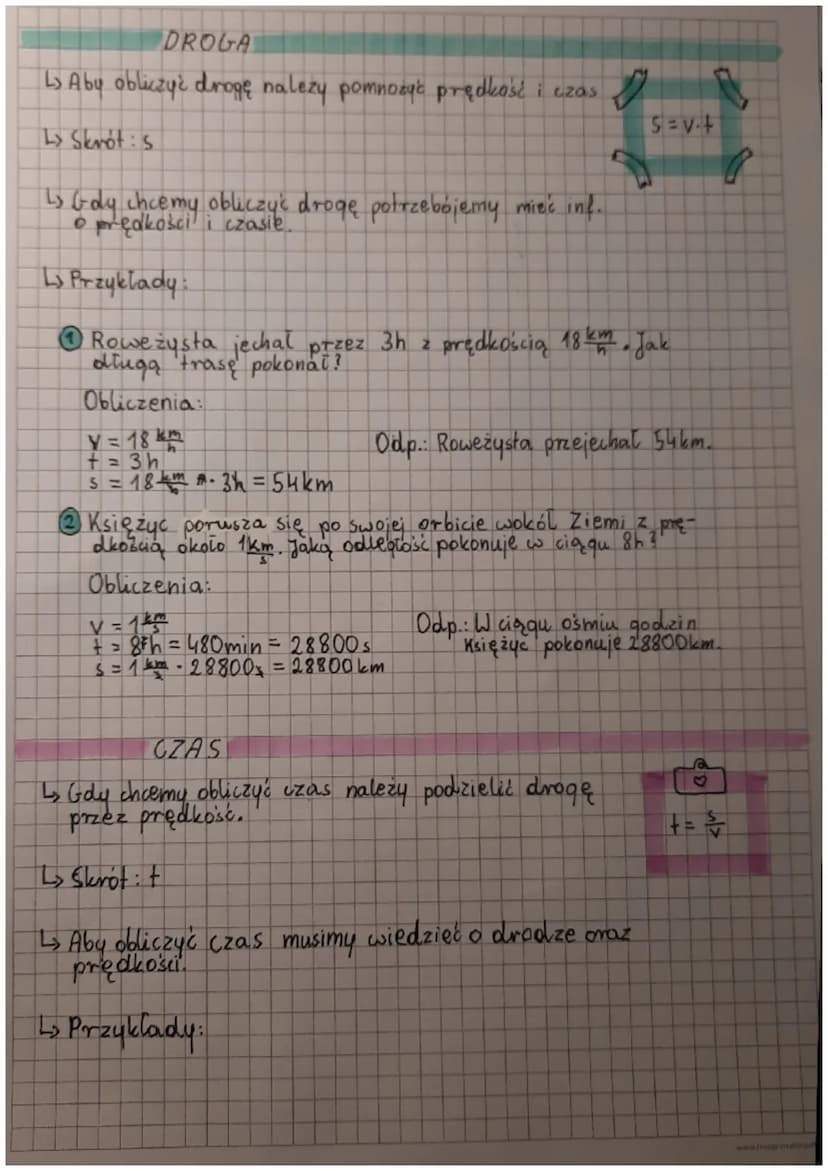 DROGA
↳ Aby obliczyć drogę należy pomnożyć prędkość i czas
s = v·t
↳ Skrót: s
↳ Gdy chcemy obliczyć drogę potrzebójemy mieć inf.
o prędkości i czasie.
↳ Przykłady:
1 Roweżysta jechał przez 3h z prędkością 18 km/h. Jak
długą trasę pokonał?
Obliczenia:
v = 18 km/h
t = 3h
s = 18 km/h · 3h = 54km
Odp.: Roweżysta przejechał 54km.
2 Księżyc porusza się po swojej orbicie wokół Ziemi z prę-
dkością około 1 km/s. Jaką odległość pokonuje w ciągu 8h?
Obliczenia:
v = 1 km/s
t = 8h = 480min = 28800s
s = 1 km/s · 28800s = 28800km
Odp.: W ciągu ośmiu godzin
Księżyc pokonuje 28800km.
CZAS
↳ Gdy chcemy obliczyć czas należy podzielić drogę
przez prędkość.
t = s/v
↳ Skrót: t
↳ Aby obliczyć czas musimy wiedzieć o drodze oraz
prędkości.
↳ Przykłady: